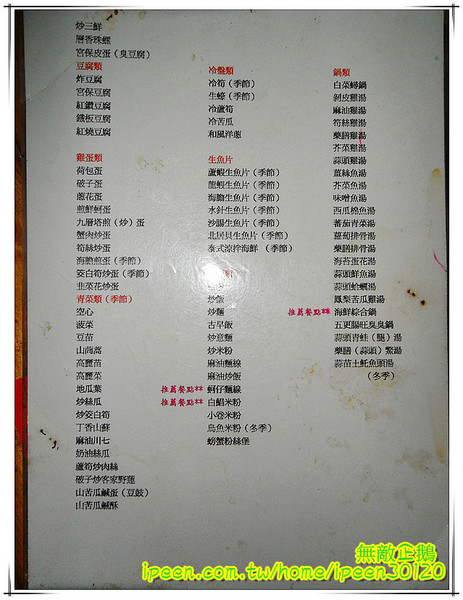 炒三鮮
層香珠螺
宮保皮蛋（臭豆腐）
豆腐類
炸豆腐
宮保豆腐
紅鑽豆腐
鐵板豆腐
紅燒豆腐
雞蛋類
荷包蛋
破子蛋
蔥花蛋
煎鮮蚵蛋
九層塔煎（炒）蛋
蟹肉炒蛋
筍絲炒蛋
海膽煎蛋（季節）
茭白筍炒蛋（季節）
韭菜花炒蛋
青菜類（季節）
空心
菠菜
豆苗
山茼蒿
高麗苗
高麗菜
地瓜葉
炒絲瓜
炒茭白筍
丁香山蘇
麻油川七
奶油絲瓜
蘆筍炒肉絲
破子炒客家野蓮
山苦瓜鹹蛋（豆豉）
山苦瓜鹹酥
冷盤類
冷筍（季節）
生蠔（季節）
冷蘆筍
冷苦瓜
和風洋蔥
生魚片
蘆蝦生魚片（季節）
龍蝦生魚片（季節）
海膽生魚片（季節）
水針生魚片（季節）
沙腸生魚片（季節）
北居貝生魚片（季節）
泰式涼拌海鮮（季節）
炒飯
炒麵
古早飯
炒意麵
炒米粉
麻油麵線
麻油炒飯
推薦餐點** 蚵仔麵線
推薦餐點** 白鯧米粉
小卷米粉
烏魚米粉（冬季）
螃蟹粉絲堡
鍋類
白菜蟳鍋
剝皮雞湯
麻油雞湯
筍絲雞湯
藥膳雞湯
芥菜雞湯
蒜頭雞湯
薑絲魚湯
芥菜魚湯
味噌魚湯
西瓜棉魚湯
蕃茄青菜湯
蘿蔔排骨湯
藥膳排骨湯
海苔蛋花湯
蒜頭鮮魚湯
蒜頭蛤蠣湯
鳳梨苦瓜雞湯
推薦餐點** 海鮮綜合鍋
五更腸旺臭臭鍋
蒜頭青蛙（腿）湯
藥膳（蒜頭）鱉湯
蒜苗土魠魚頭湯
（冬季）
無敵企鵝
ipeen.com.tw/home/ipeen30120